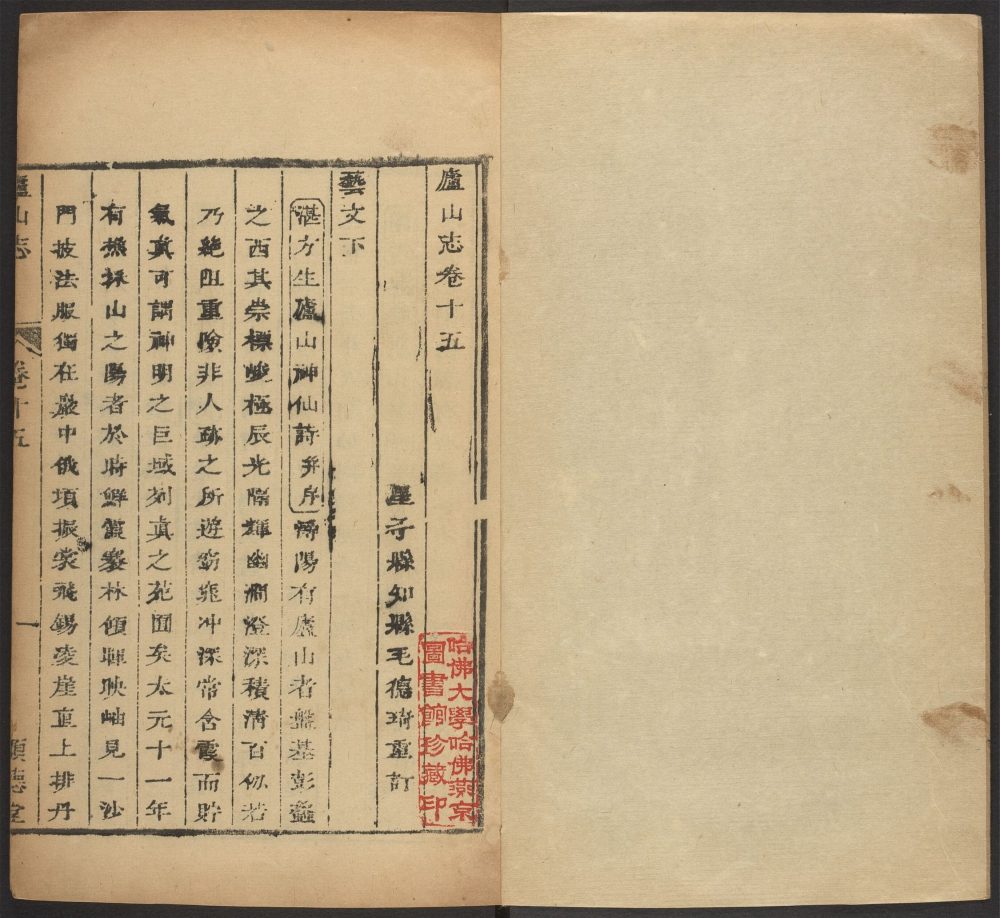 廬山志卷十五
星子縣知縣毛德琦重訂
藝文下
湛方生廬山神仙詩并序潯陽有廬山者盤基彭蠡
之西其崇標峻極辰光隔輝幽澗澄深積清百仞若
乃絕阻重險非人跡之所遊窈窕冲深常含霞而貯
氣真可謂神明之巨域列真之苑囿矣太元十一年
有樵採山之陽者於時鮮霞褰林傾暉映岫見一沙
門披法服獨在巖中俄頃振裳飛錫凌崖直上排丹
廬山志
卷十五
一
順德堂
哈佛大學哈佛燕京
圖書館珍藏印